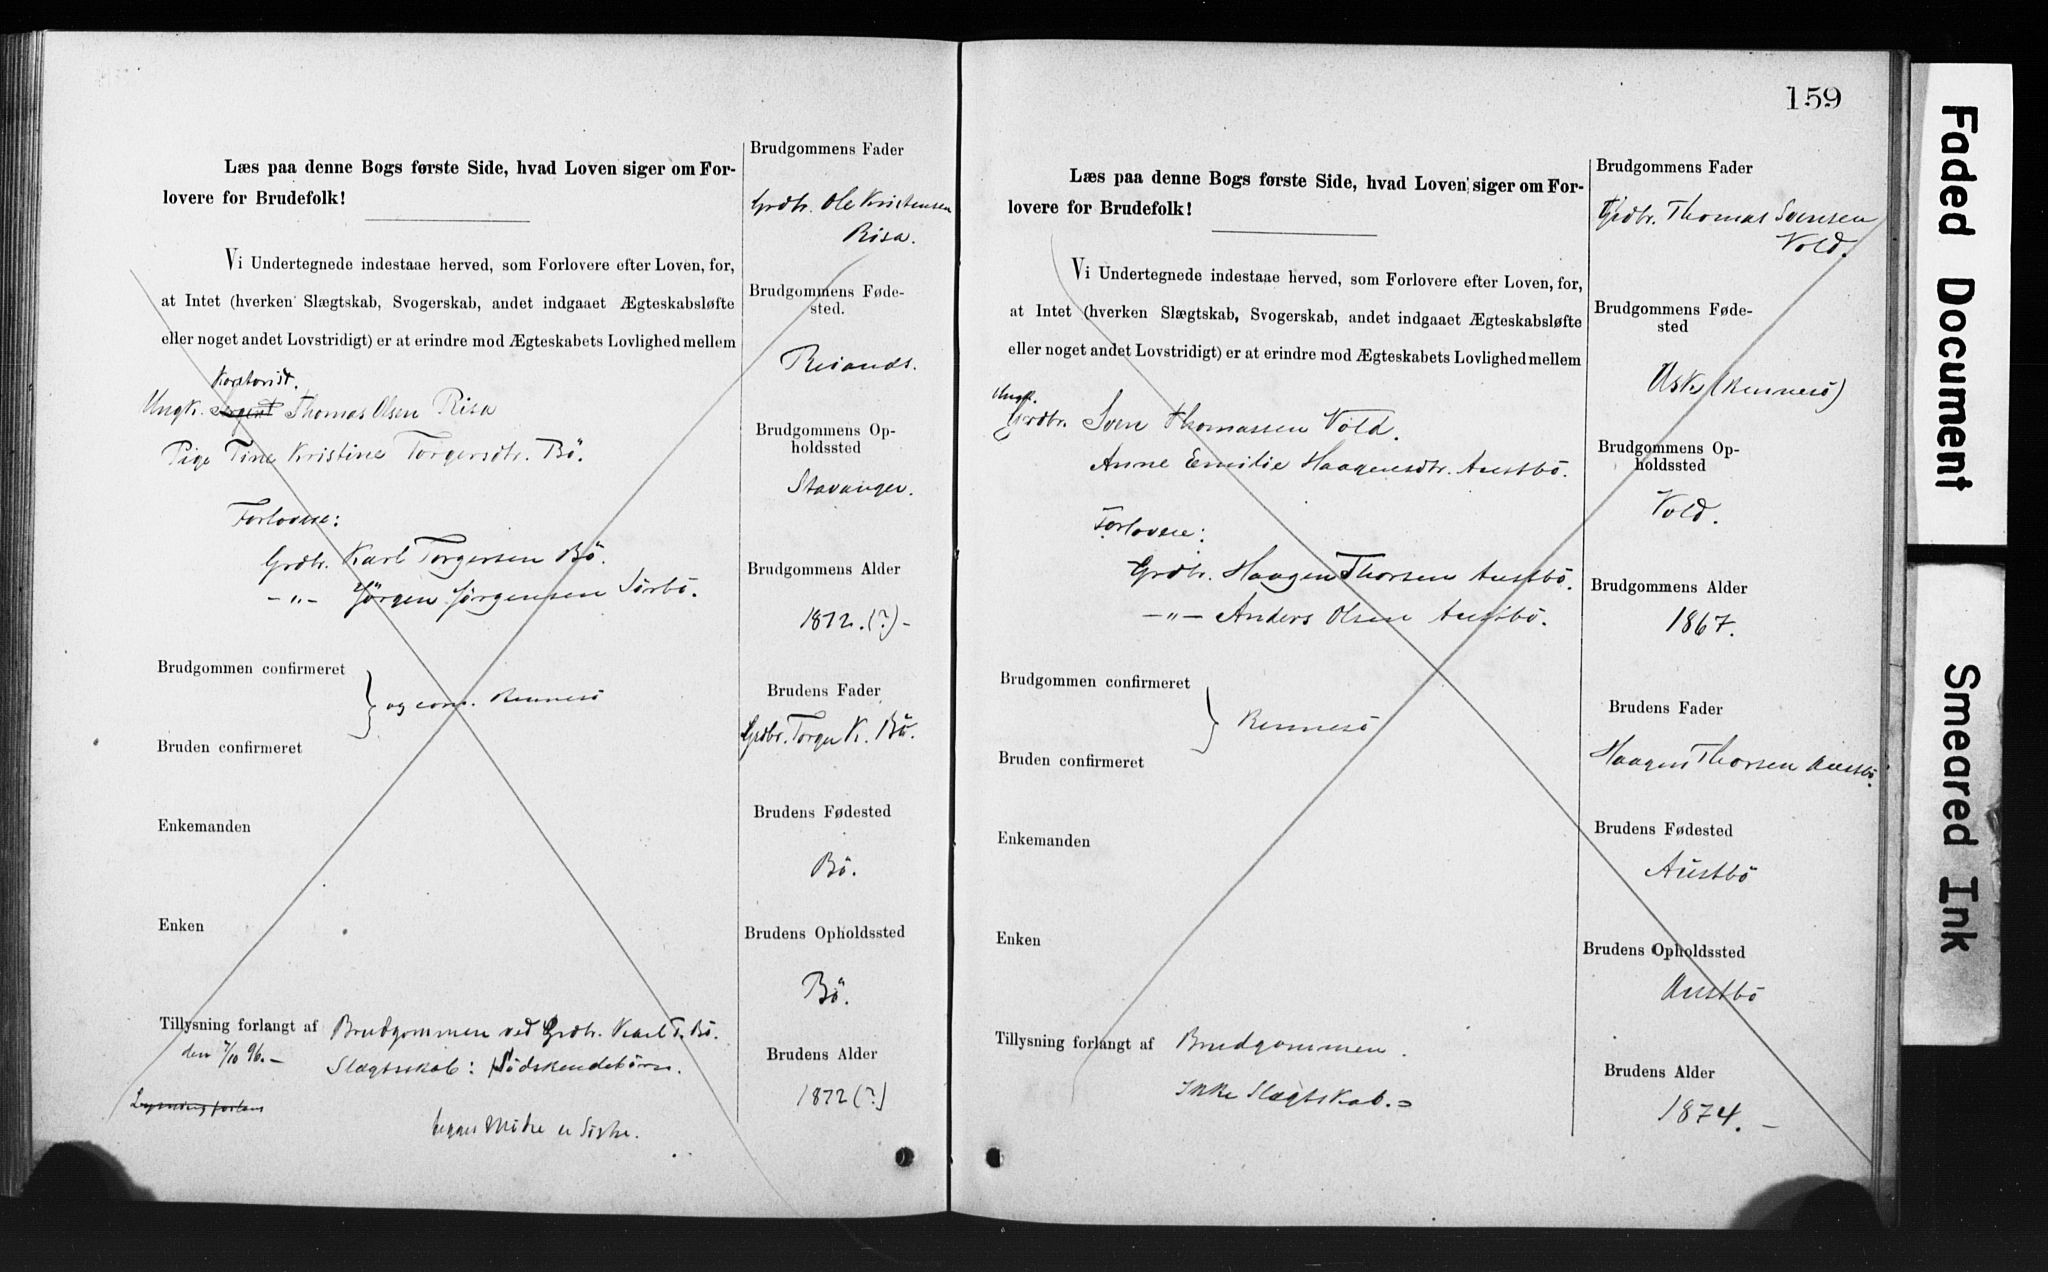 Læs paa denne Bogs første Side, hvad Loven siger om For-
lovere for Brudefolk!
Vi Undertegnede indestaae herved, som Forlovere efter Loven, for,
at Intet (hverken Slægtskab, Svogerskab, andet indgaaet Ægteskabsløfte
eller noget andet Lovstridigt) er at erindre mod Ægteskabets Lovlighed mellem
Ungk. Thomas Olsen Risa
Pige Tine Kristine Torgersdtr. Bö.
Forlovere:
Grdbr. Karl Torgersen Bö.
-„- Jörgen Jörgensen Sörbö.
Brudgommen confirmeret
og conf. Rennesö
Bruden confirmeret
Enkemanden
Enken
Tillysning forlangt af Brudgommen ved Grdbr. Karl T. Bö.
den 7/10 96.-
Slægtskab: Södskendebörn.
Lysning forlan
Mödre er Söstre.
Brudgommens Fader
Grdbr. Ole Kristensen
Risa.
Brudgommens Føde-
sted.
Brudgommens Op-
holdssted
Stavanger.
Brudgommens Alder
1872.(?)-
Brudens Fader
Grdbr. Torger K. Bö.
Brudens Fødested
Bö.
Brudens Opholdssted
Bö.
Brudens Alder
1872(?)
159
Læs paa denne Bogs første Side, hvad Loven siger om For-
lovere for Brudefolk!
Vi Undertegnede indestaae herved, som Forlovere efter Loven, for,
at Intet (hverken Slægtskab, Svogerskab, andet indgaaet Ægteskabsløfte
eller noget andet Lovstridigt) er at erindre mod Ægteskabets Lovlighed mellem
Ungk.
Grdbr. Sven Thomassen Vold.
Anne Emilie Haagensdtr. Austbö.
Forlovere:
Grdbr. Haagen Thorsen Austbö.
-„- Anders Olsen Austbö.
Brudgommen confirmeret
Rennesö
Bruden confirmeret
Enkemanden
Enken
Tillysning forlangt af Brudgommen.
Ikke Slægtskab.=
Brudgommens Fader
Grdbr. Thomas Svensen
Vold.
Brudgommens Føde-
sted
Usk (Rennesö)
Brudgommens Op-
holdssted
Vold.
Brudgommens Alder
1867.
Brudens Fader
Haagen Thorsen Austbö.
Brudens Fødested
Austbö
Brudens Opholdssted
Austbö
Brudens Alder
1874.-
Faded Document
Smeared Ink